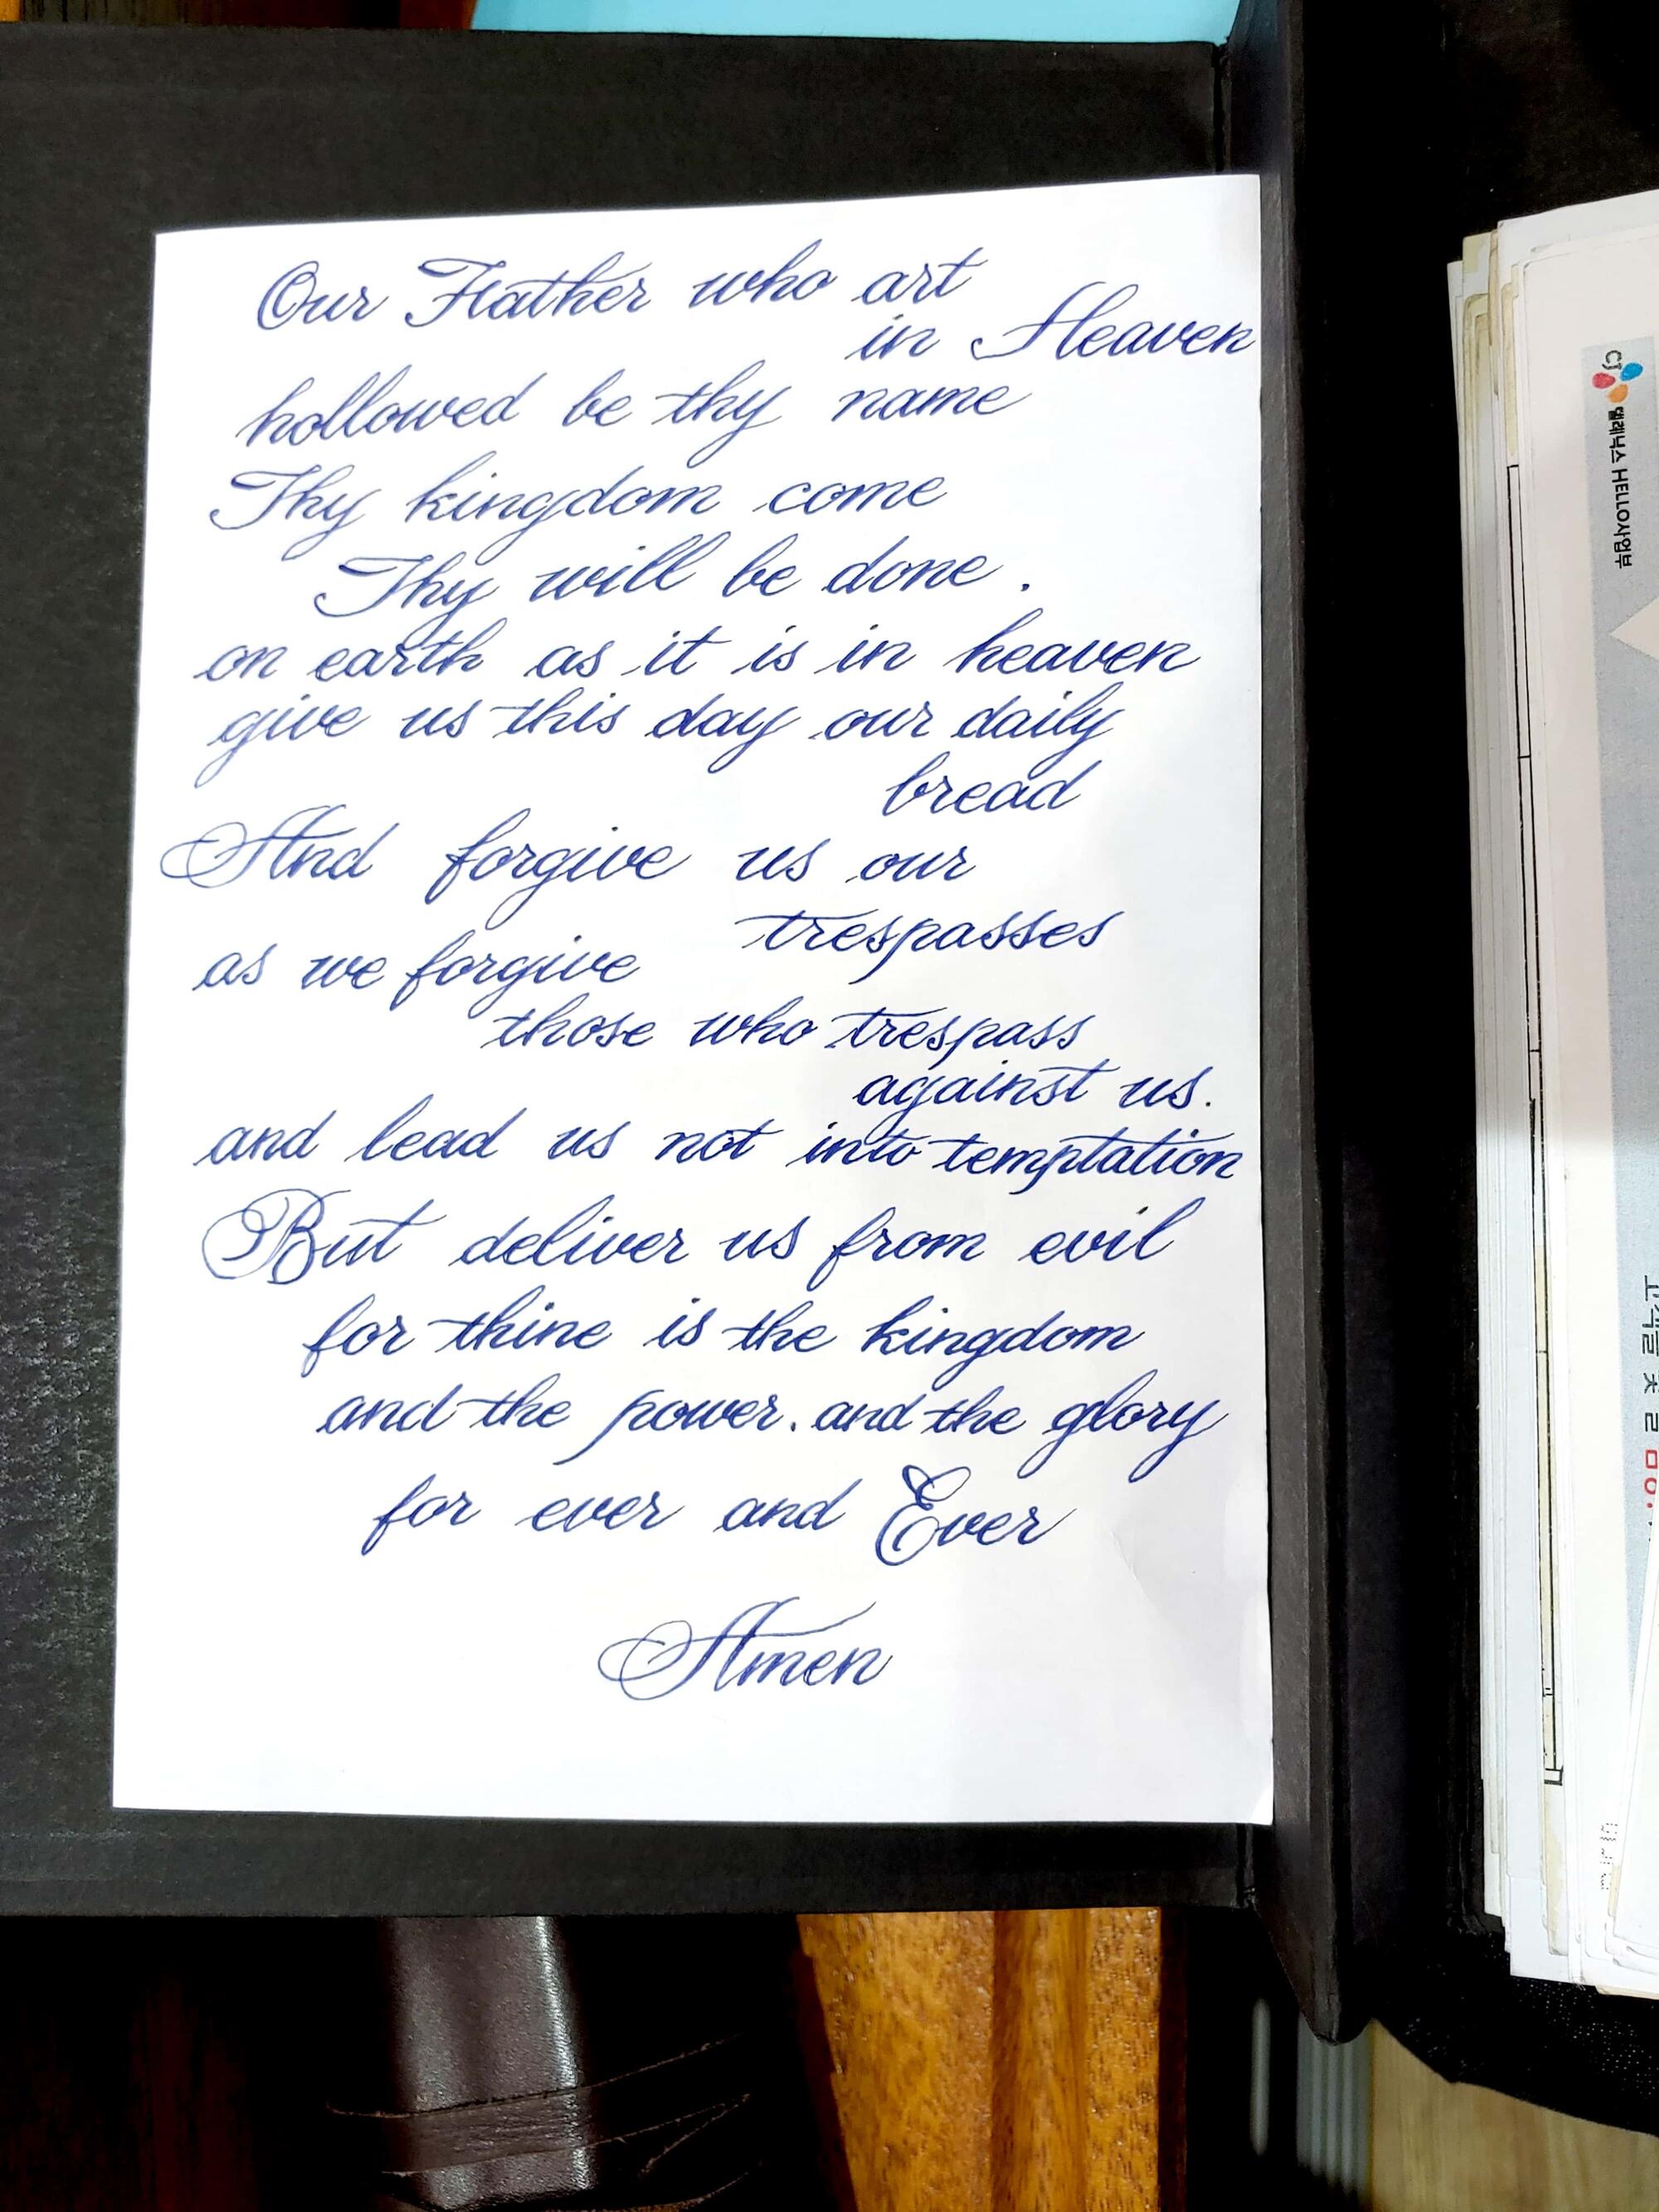 Our Father who art
in Heaven
hollowed be thy name
Thy kingdom come
Thy will be done .
on earth as it is in heaven
give us this day our daily
bread
And forgive us our
trespasses
as we forgive
those who trespass
against us.
and lead us not into temptation
But deliver us from evil
for thine is the kingdom
and the power. and the glory
for ever and Ever
Amen
CJ 헬로비전 HELLO사업부